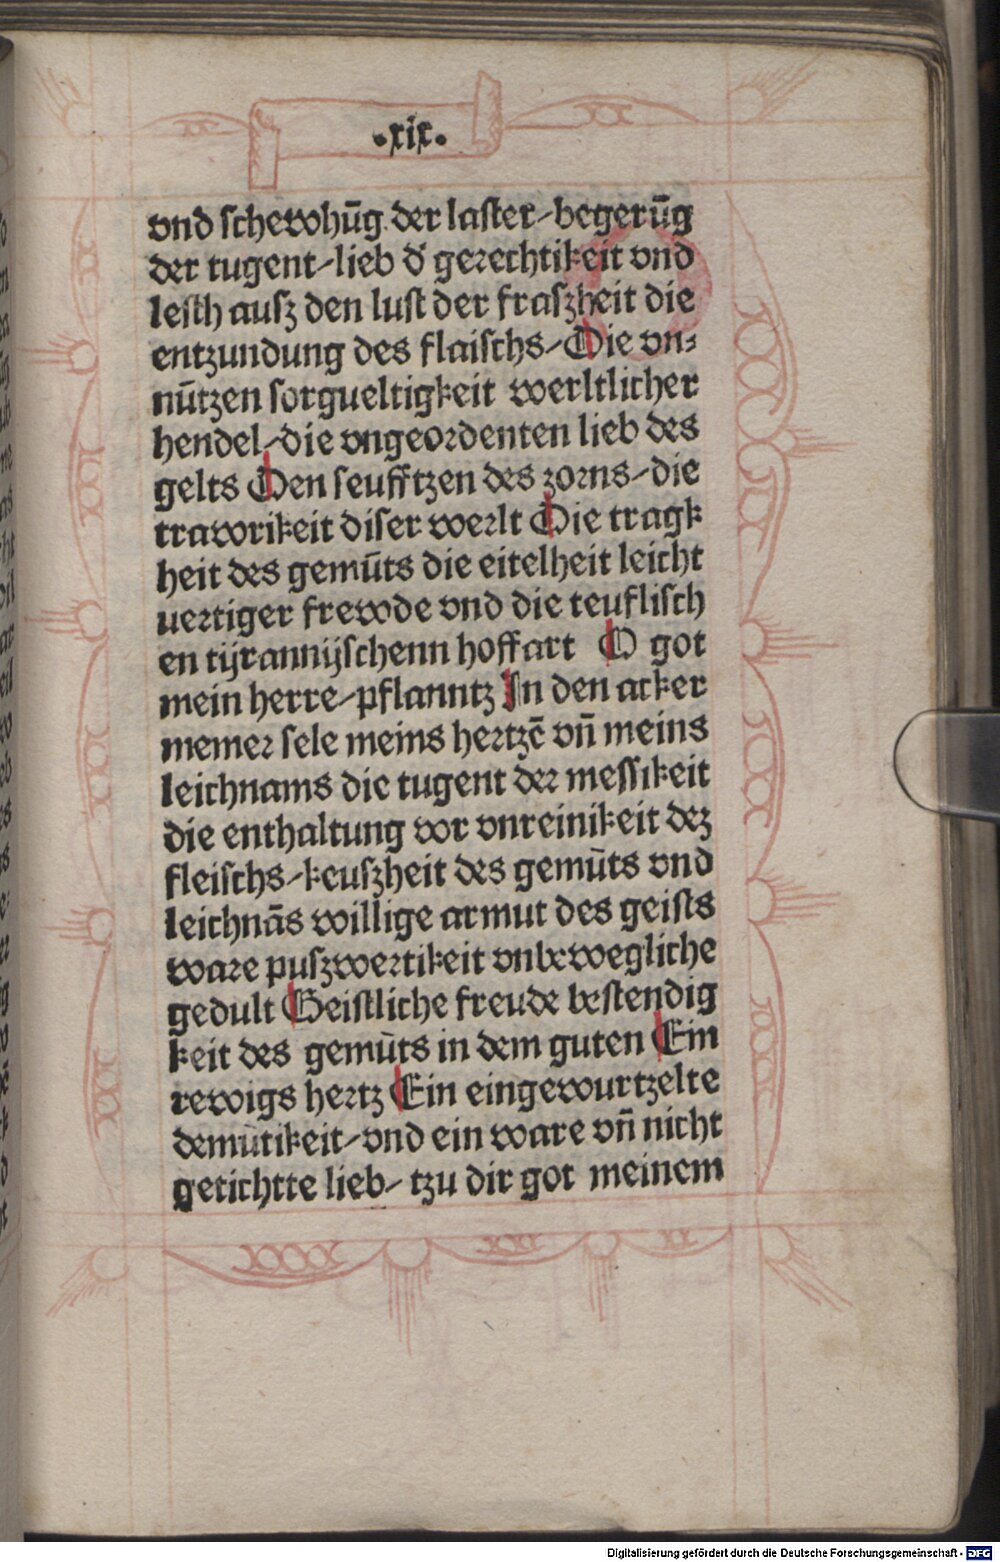 .xix.
vnd schewohūg der laster/begerūg
der tugent/lieb d' gerechtikeit vnd
lesch ausz den lust der fraszheit die
entzundung des flaischs/Die vn⸗
nūtzen sorgueltigkeit werltlicher
hendel/die vngeordenten lieb des
gelts Den seufftzen des zorns/die
trawrikeit diser werlt Die tragk
heit des gemūts die eitelheit leicht
uertiger frewde vnd die teuflisch
en tijrannijschenn hoffart O got
mein herre/pflanntz In den acker
memer sele meins hertzē vn̄ meins
leichnams die tugent der messikeit
die enthaltung vor vnreinikeit dez
fleischs/keuszheit des gemūts vnd
leichnās willige armut des geists
ware puszwertikeit vnbewegliche
gedult Geistliche freude bestendig
keit des gemūts in dem guten Ein
rewigs hertz Ein eingewurtzelte
demūtikeit/vnd ein ware vn̄ nicht
getichtte lieb/ tzu dir got meinem
Digitalisierung gefördert durch die Deutsche Forschungsgemeinschaft - DFG